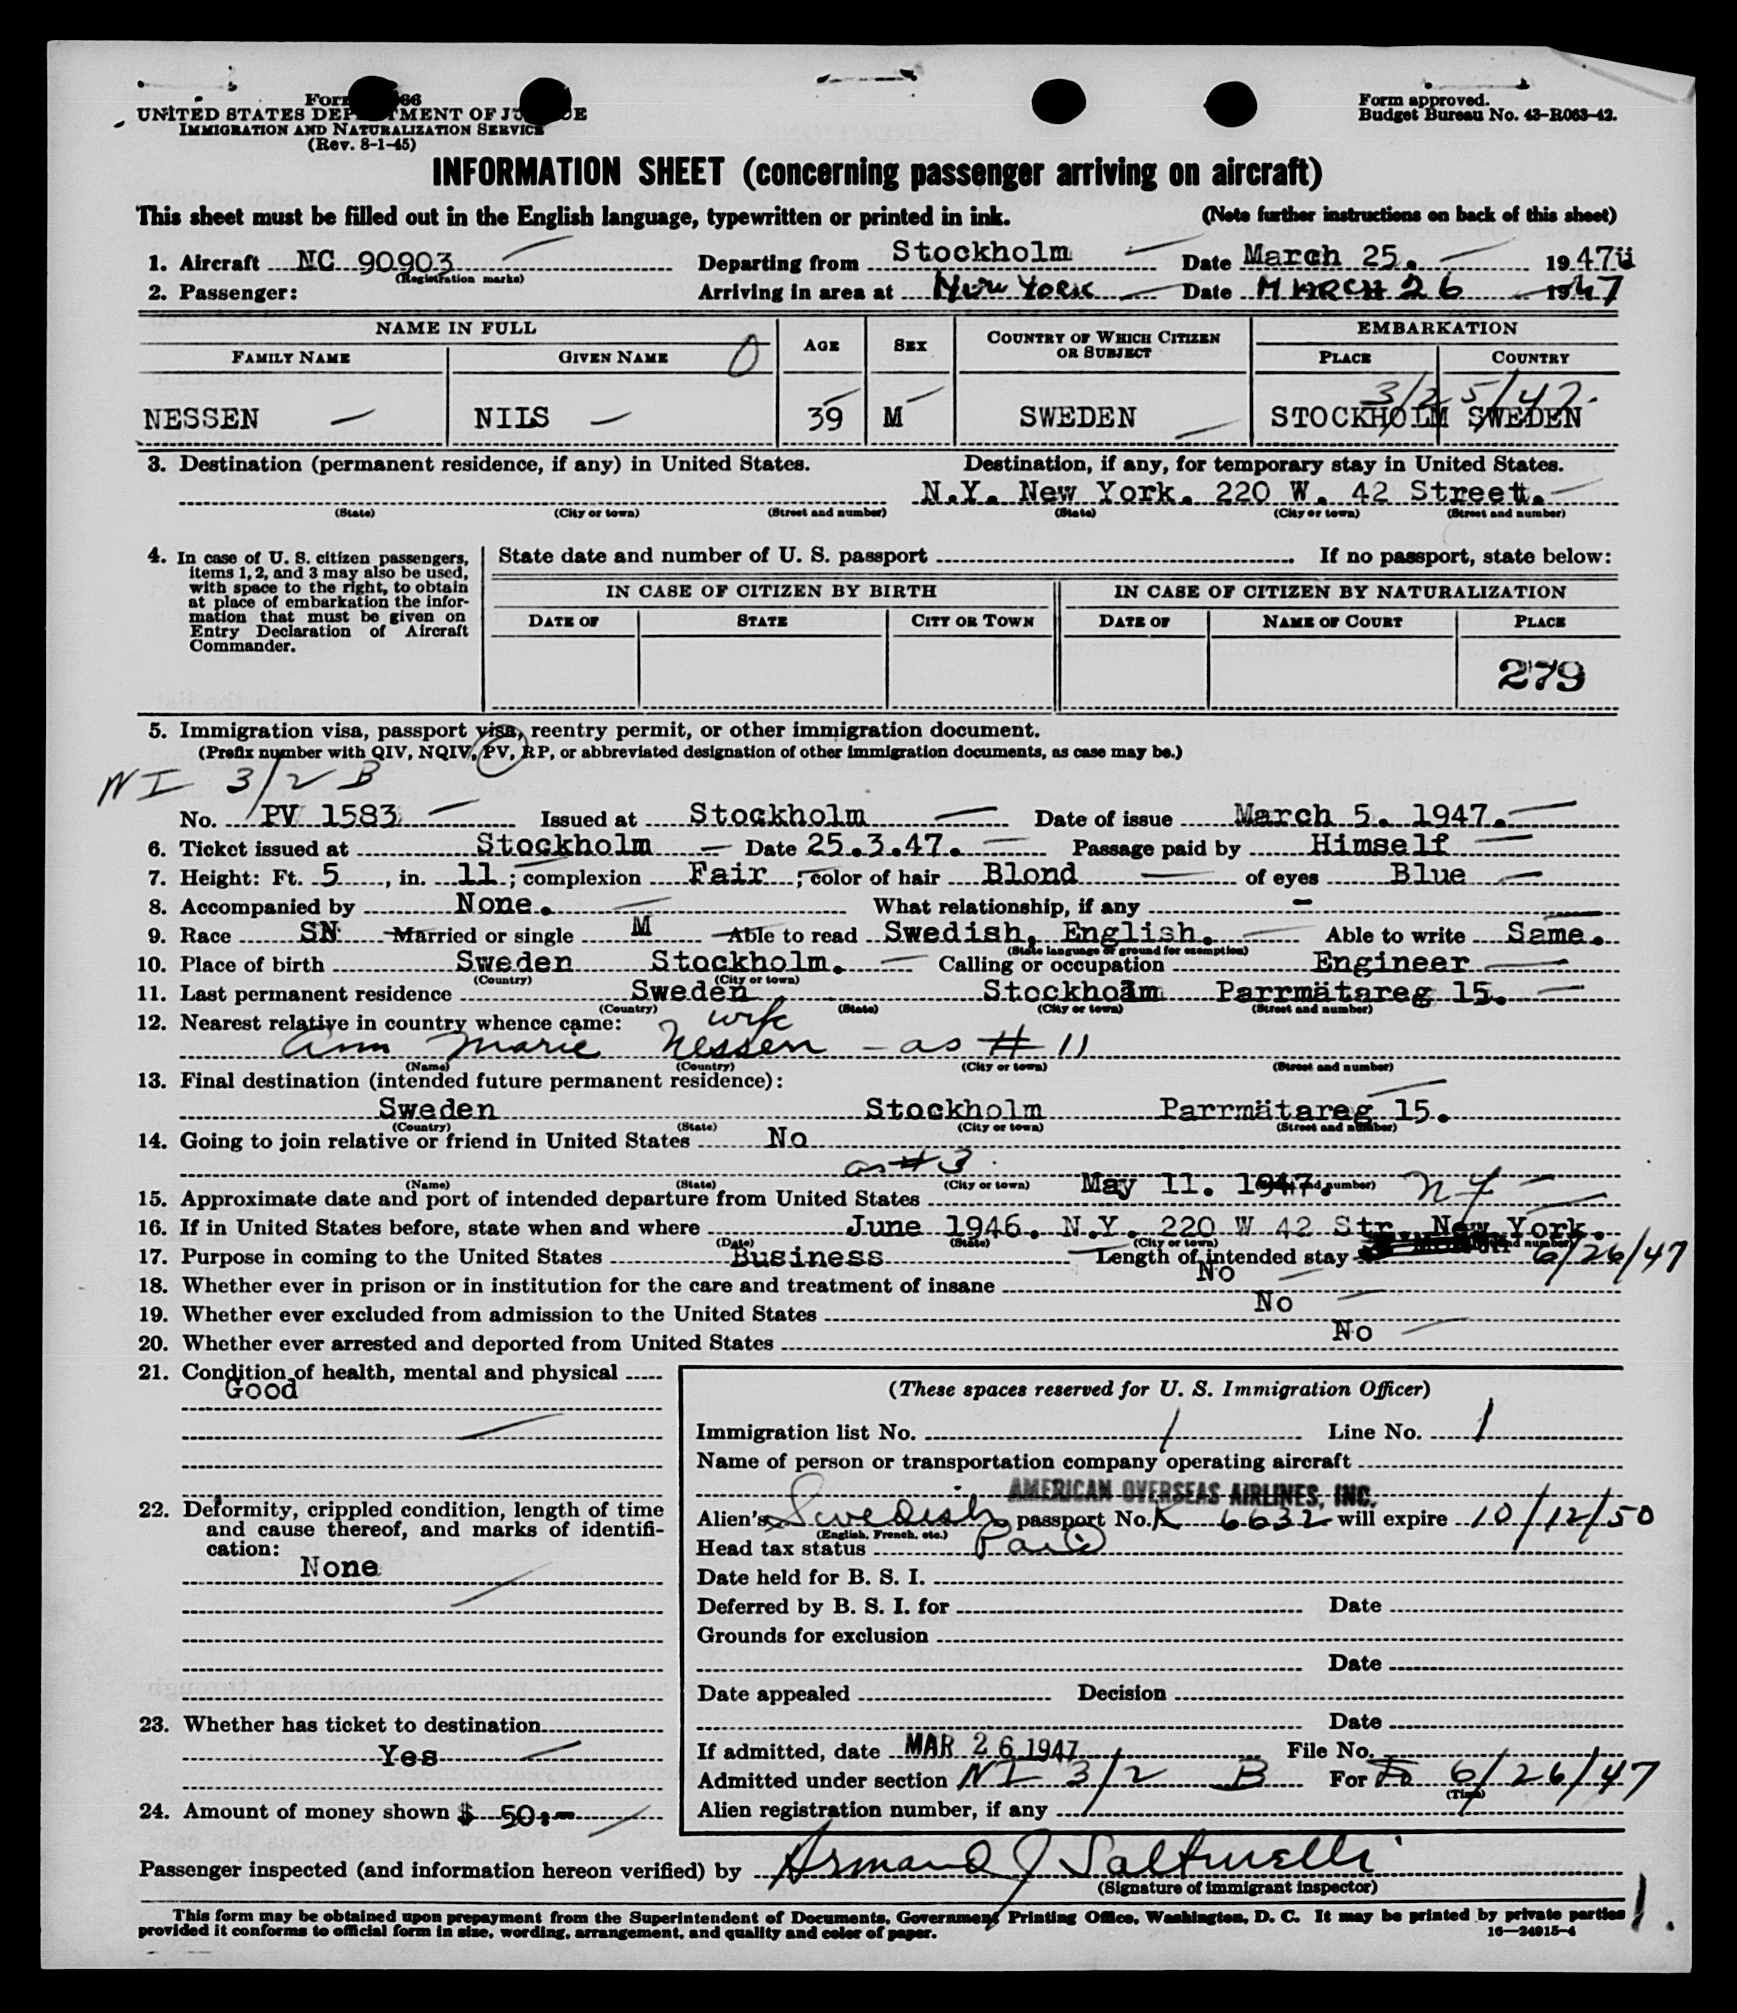 Form
UNITED STATES DEPARTMENT OF JUSTICE
IMMIGRATION AND NATURALIZATION SERVICE
(Rev. 8-1-45)
Form approved.
Budget Bureau No. 43-R063-42.
INFORMATION SHEET (concerning passenger arriving on aircraft)
This sheet must be filled out in the English language, typewritten or printed in ink. (Note further instructions on back of this sheet)
1. Aircraft NC 90903 Departing from Stockholm Date March 25. 1947
(Registration marks)
2. Passenger: Arriving in area at NEW YORK Date MARCH 26 1947
NAME IN FULL AGE SEX COUNTRY OF WHICH CITIZEN OR SUBJECT EMBARKATION
FAMILY NAME GIVEN NAME 0 PLACE COUNTRY
3/25/47.
NESSEN NILS 39 M SWEDEN STOCKHOLM SWEDEN
3. Destination (permanent residence, if any) in United States. Destination, if any, for temporary stay in United States.
N.Y. New York. 220 W. 42 Street.
(State) (City or town) (Street and number) (State) (City or town) (Street and number)
4. In case of U. S. citizen passengers, items 1, 2, and 3 may also be used, with space to the right, to obtain at place of embarkation the information that must be given on Entry Declaration of Aircraft Commander.
State date and number of U. S. passport If no passport, state below:
IN CASE OF CITIZEN BY BIRTH IN CASE OF CITIZEN BY NATURALIZATION
DATE OF STATE CITY OR TOWN DATE OF NAME OF COURT PLACE
279
5. Immigration visa, passport visa, reentry permit, or other immigration document.
(Prefix number with QIV, NQIV, PV, RP, or abbreviated designation of other immigration documents, as case may be.)
NI 3/2 B
No. PV 1583 Issued at Stockholm Date of issue March 5. 1947.
6. Ticket issued at Stockholm Date 25.3.47. Passage paid by Himself
7. Height: Ft. 5, in. 11; complexion Fair; color of hair Blond of eyes Blue
8. Accompanied by None. What relationship, if any -
9. Race SN Married or single M Able to read Swedish, English. Able to write Same.
(State language or ground for exemption)
10. Place of birth Sweden Stockholm. Calling or occupation Engineer
(Country) (City or town)
11. Last permanent residence Sweden Stockholm Parrmätareg 15.
(Country) (State) (City or town) (Street and number)
12. Nearest relative in country whence came: wife
Ann Marie Nessen - as # 11
(Name) (Country) (City or town) (Street and number)
13. Final destination (intended future permanent residence):
Sweden Stockholm Parrmätareg 15.
(Country) (State) (City or town) (Street and number)
14. Going to join relative or friend in United States No
as # 3
(Name) (State) (City or town) (Street and number)
15. Approximate date and port of intended departure from United States May 11. 1947. NY
16. If in United States before, state when and where June 1946. N.Y. 220 W 42 Str. New York.
(Date) (State) (City or town) (Street and number)
17. Purpose in coming to the United States Business Length of intended stay 6/26/47
18. Whether ever in prison or in institution for the care and treatment of insane No
19. Whether ever excluded from admission to the United States No
20. Whether ever arrested and deported from United States No
21. Condition of health, mental and physical
Good
22. Deformity, crippled condition, length of time and cause thereof, and marks of identification:
None
23. Whether has ticket to destination
Yes
24. Amount of money shown $ 50:-
(These spaces reserved for U. S. Immigration Officer)
Immigration list No. 1 Line No. 1
Name of person or transportation company operating aircraft
AMERICAN OVERSEAS AIRLINES, INC.
Alien's Swedish passport No. K 6632 will expire 10/12/50
(English, French, etc.)
Head tax status Paid
Date held for B. S. I.
Deferred by B. S. I. for Date
Grounds for exclusion
Date
Date appealed Decision
Date
If admitted, date MAR 26 1947 File No.
Admitted under section NI 3/2 B For To 6/26/47
(Time)
Alien registration number, if any
Passenger inspected (and information hereon verified) by Armand J
(Signature of immigrant inspector)
This form may be obtained upon prepayment from the Superintendent of Documents, Government Printing Office, Washington, D. C. It may be printed by private parties
provided it conforms to official form in size, wording, arrangement, and quality and color of paper. 16—24915-4
1.